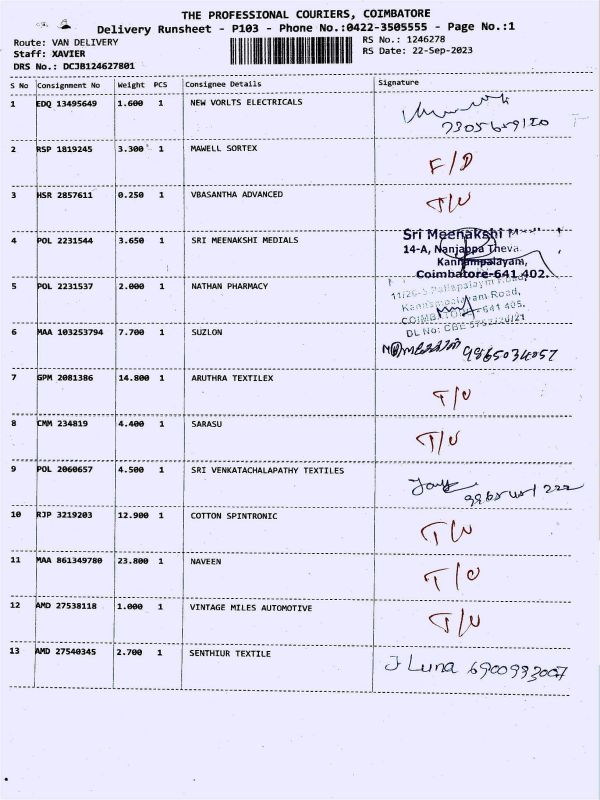 THE PROFESSIONAL COURIERS, COIMBATORE
Delivery Runsheet - P103 - Phone No.:0422-3505555 - Page No.:1
Route: VAN DELIVERY RS No.: 1246278
Staff: XAVIER RS Date: 22-Sep-2023
DRS No.: DCJB124627801
S No Consignment No Weight PCS Consignee Details Signature
1 EDQ 13495649 1.600 1 NEW VORLTS ELECTRICALS
2 RSP 1819245 3.300 1 MAWELL SORTEX F/D
3 HSR 2857611 0.250 1 VBASANTHA ADVANCED T/U
4 POL 2231544 3.650 1 SRI MEENAKSHI MEDIALS
Sri Meenakshi
14-A, Nanjappa Theva
Kannampalayam,
Coimbatore-641 402.
5 POL 2231537 2.000 1 NATHAN PHARMACY
Road,
6 MAA 103253794 7.700 1 SUZLON
9865034057
7 GPM 2081386 14.800 1 ARUTHRA TEXTILEX T/U
8 CMM 234819 4.400 1 SARASU T/U
9 POL 2060657 4.500 1 SRI VENKATACHALAPATHY TEXTILES
10 RJP 3219203 12.900 1 COTTON SPINTRONIC T/U
11 MAA 861349780 23.800 1 NAVEEN T/U
12 AMD 27538118 1.000 1 VINTAGE MILES AUTOMOTIVE T/U
13 AMD 27540345 2.700 1 SENTHIUR TEXTILE J Luna 6900933007